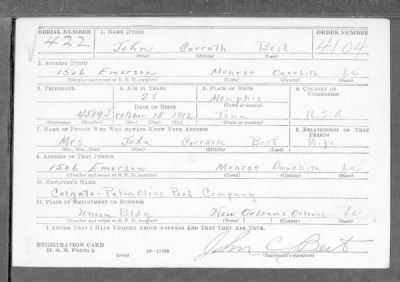 SERIAL NUMBER 1. NAME (Print) ORDER NUMBER
422 John Carruth Best 4104
(First) (Middle) (Last)
2. ADDRESS (Print)
1506 Emerson Monroe Ouachita La
(Number and street or R. F. D. number) (Town) (County) (State)
3. TELEPHONE 4. AGE IN YEARS 5. PLACE OF BIRTH 6. COUNTRY OF CITIZENSHIP
28 Memphis
DATE OF BIRTH (Town or county)
4509J October 18 1912 Tenn U.S.A
(Exchange) (Number) (Mo.) (Day) (Yr.) (State or country)
7. NAME OF PERSON WHO WILL ALWAYS KNOW YOUR ADDRESS 8. RELATIONSHIP OF THAT PERSON
Mrs John Carruth Best Wife
(Mr., Mrs., Miss) (First) (Middle) (Last)
9. ADDRESS OF THAT PERSON
1506 Emerson Monroe Ouachita La
(Number and street or R. F. D. number) (Town) (County) (State)
10. EMPLOYER'S NAME
Colgate-Palmolive Peet Company
11. PLACE OF EMPLOYMENT OR BUSINESS
Union Bldg New Orleans Orleans La
(Number and street or R. F. D. number) (Town) (County) (State)
I AFFIRM THAT I HAVE VERIFIED ABOVE ANSWERS AND THAT THEY ARE TRUE.
REGISTRATION CARD
D. S. S. Form 1 (over) 16-17105 John C Best
(Registrant's signature)